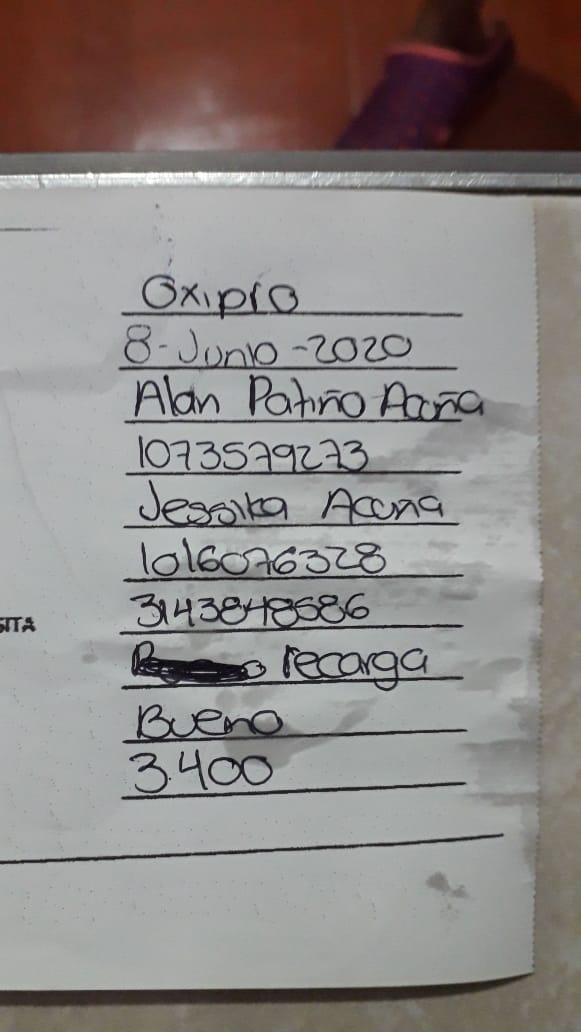 Oxipro
8-Junio-2020
Alan Patiño Acuña
1073579273
Jessika Acuna
1016076328
3143848586
SITA
recarga
Bueno
3.400